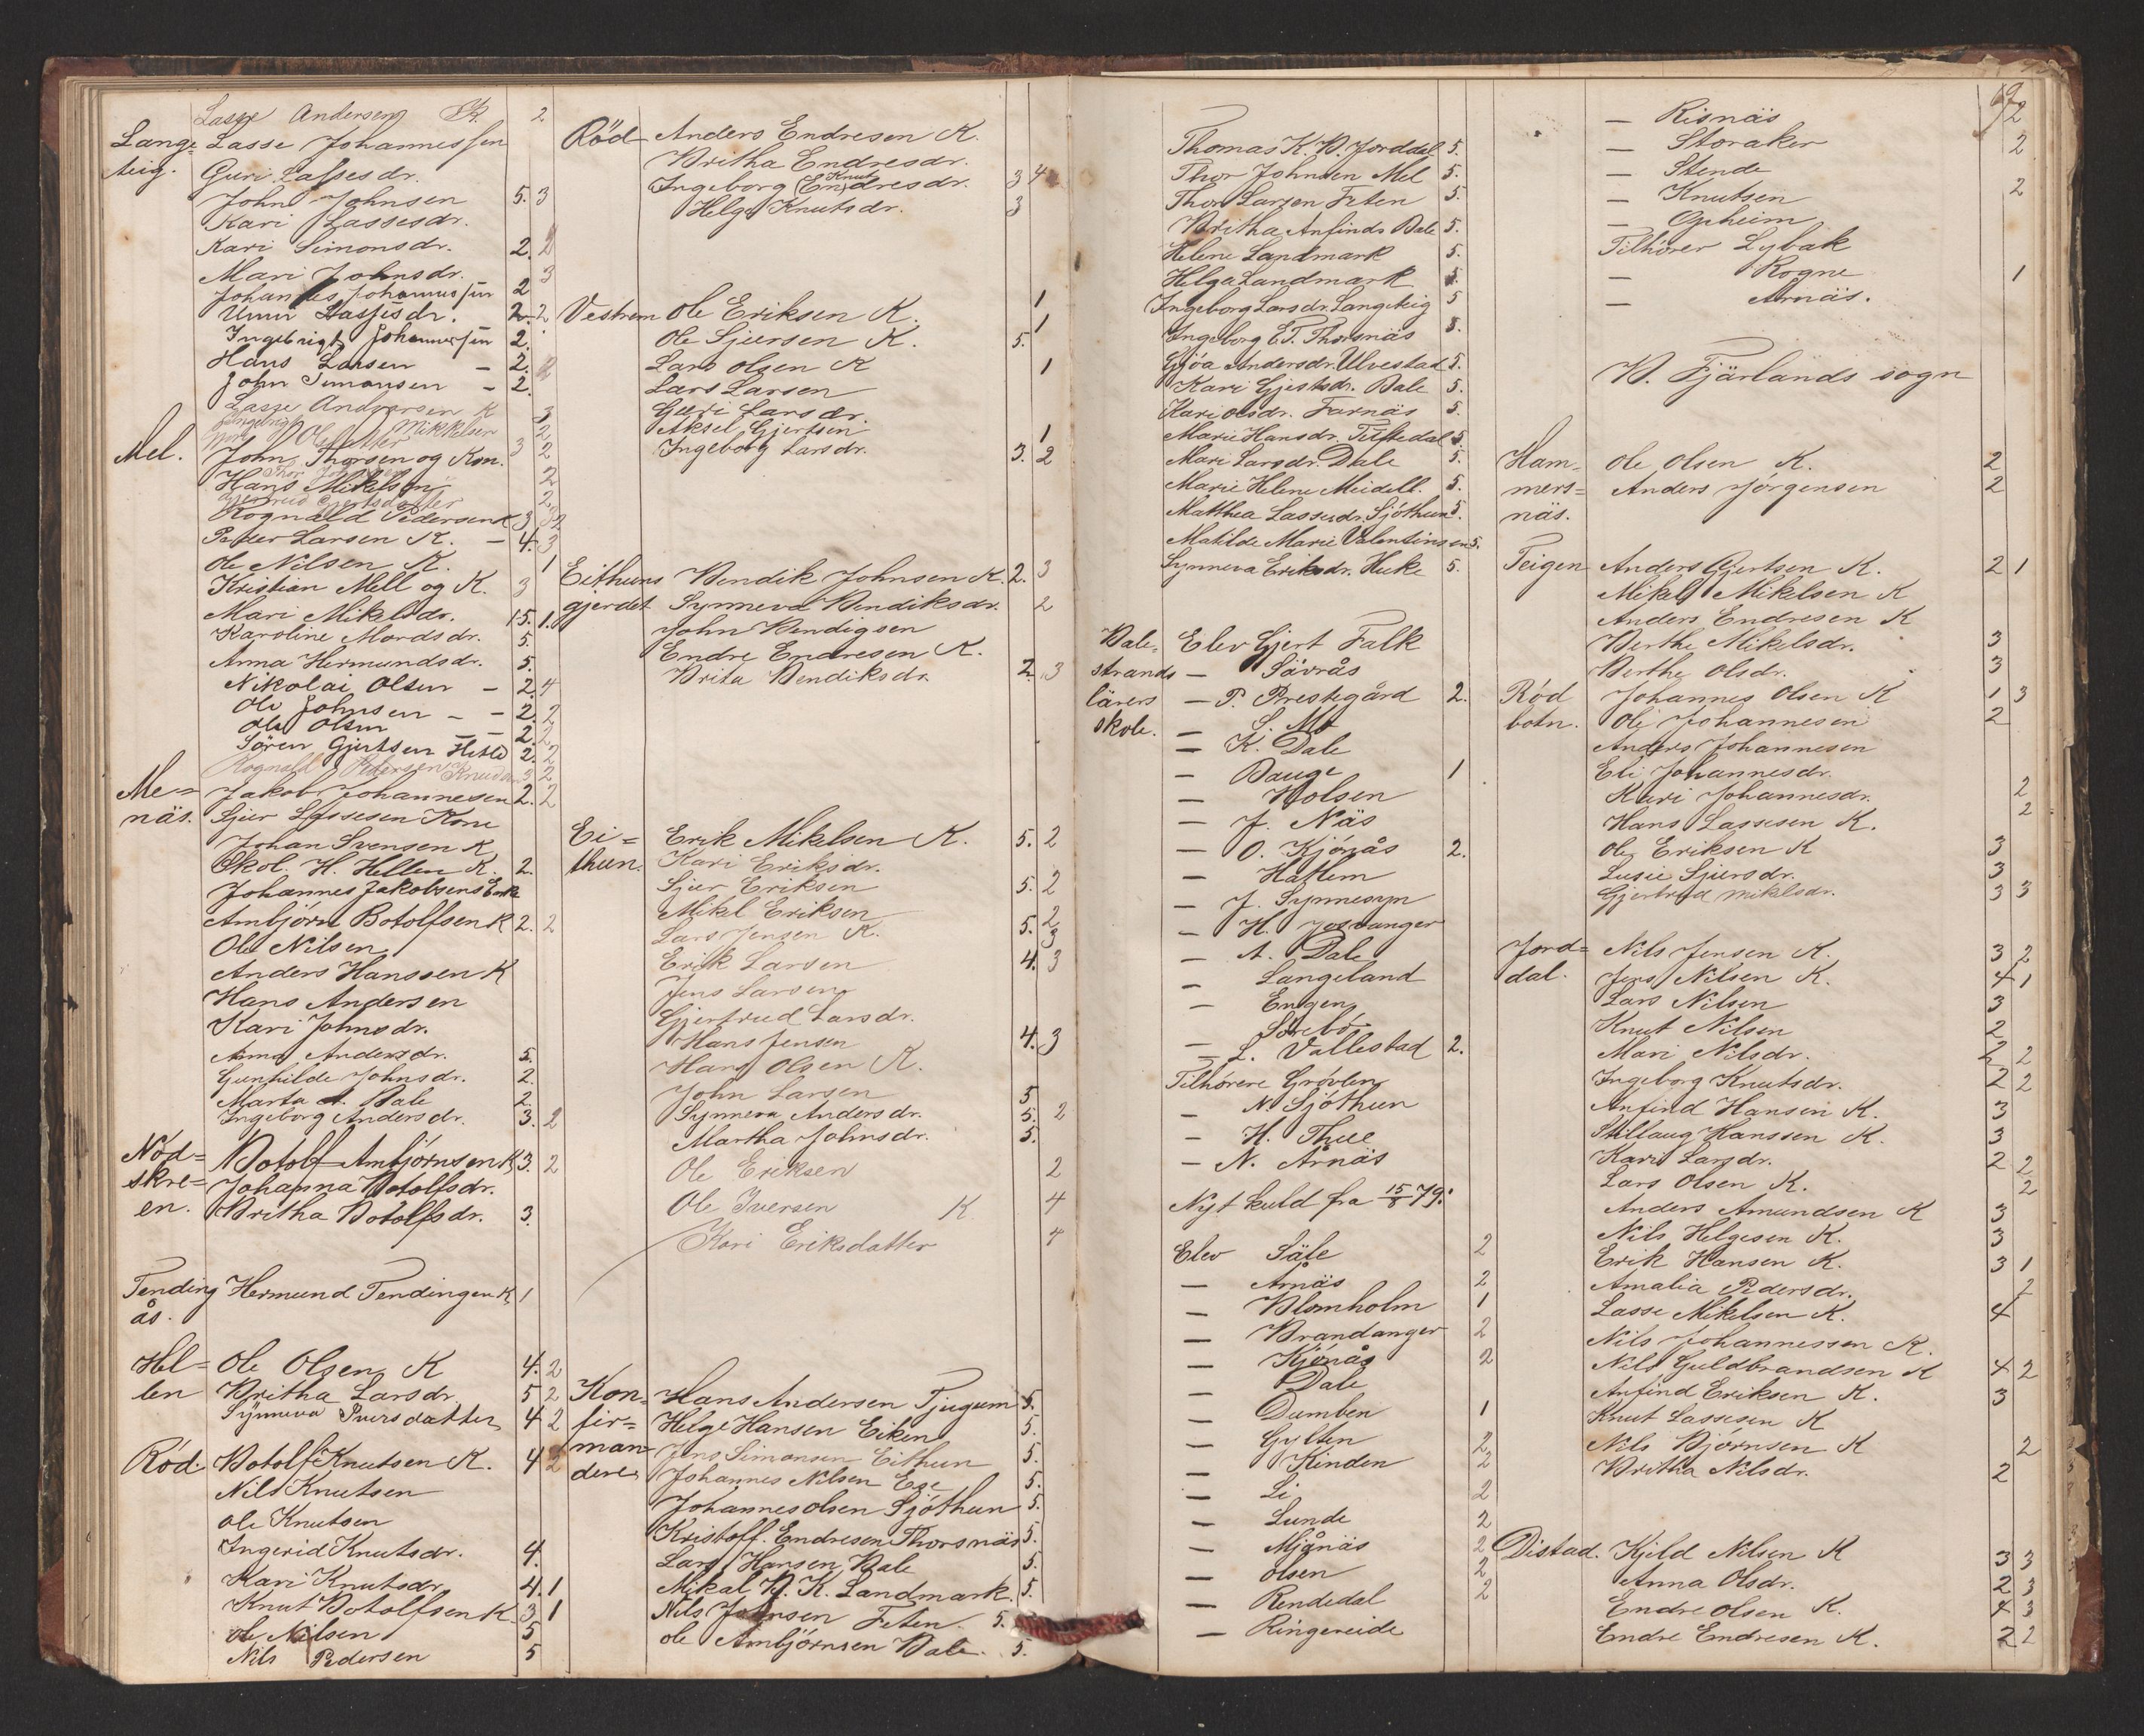 Lasse Andersen K. 2
Lange- Lasse Johannessen
teig. Guri Lassesdr.
John Johnsen 5. 3
Kari Lassesdr.
Kari Simonsdr. 2. 2
Mari Johnsdr. 3
Johannes Johannessen 2
Unni Lassesdr. 2. 2
Ingebrigt Johannessen 2.
Hans Larsen - 2. 2
John Simonsen - 2.
Lasse Andersen K 3
Mikkelsen 2
Mel. John Thorsen og Kon. 3 2
Hans Mikelsen 2
Gjertrud Gjertsdatter 2
Rognald Pedersen K 3 3 2
Peder Larsen K. - 4. 3
Ole Nilsen K. 1
Kristian Mell og K. 3
Mari Mikelsdr. 15. 1.
Karoline Mordsdr. 5.
Anna Hermundsdr. 5.
Nikolai Olsen - 2. 4
Ole Johnsen - - 2. 2
Ole Olsen - - 2. 2
Sören Gjertsen Hetle 2. 2
Rognald Petersen Knudsen 3 2
Me- Jakob Johannesen 2. 2
näs. Sjur Lassesen Kone
Johan Svensen K
Skol. H. Hellen K. 2.
Johannes Jakobsens Enke
Ambjörn Botolfsen K 2. 2
Ole Nilsen
Anders Hanssen K
Hans Andersen
Kari Johnsdr.
Anna Andersdr. 5.
Gunhilde Johnsdr. 2.
Marta A. Bale 2.
Ingeborg Andersdr. 3. 2
Nöd- Botolf Ambjörnsen K 3. 2
skre- Johanna Botolfsdr.
en. Britha Botolfsdr. 3.
Tending Hermund Tendingen K. 1
ås.
Hel- Ole Olsen K 4. 2
len Britha Larsdr. 5 2
Synneva Iversdatter 4 2
Röd. Botolf Knutsen K. 4 2
Nils Knutsen
Ole Knutsen
Ingerid Knutsdr. 4.
Kari Knutsdr. 4. 1
Knut Botolfsen K 3 1
Ole Nilsen 5
Nils Pedersen 5
Röd Anders Endresen K.
Britha Endresdr.
Knut
Ingeborg (En)dresdr. 3 4
Helge Knutsdr. 3
Vestrem Ole Eriksen K. 1
Ole Sjursen K. 5. 1
Lars Olsen K 1
Lars Larsen
Guri Larsdr.
Aksel Gjertsen 1
Ingeborg Larsdr. 3. 2
Eithuns Bendik Johnsen K. 2. 3
gjerdet Synneva Bendiksdr. 2
John Bendigsen
Endre Endresen K.
Brita Bendiksdr. 2. 3
Ei- Erik Mikelsen K. 5. 2
thun. Kari Eriksdr.
Sjur Eriksen 5. 2
Mikl Eriksen 2
Lars Jensen K. 5. 3
Erik Larsen 4. 3
Jens Larsen
Gjertrud Larsdr.
Hans Jensen 4. 3
Hans Olsen K.
John Larsen 5
Synneva Andersdr. 5. 2
Martha Johnsdr. 5.
Ole Eriksen 2
Ole Iversen K 4
Kari Eriksdatter 4
Kon- Hans Andersen Tjugum 5.
fir- Helge Hansen Eiken 5.
man- Jens Simonsen Eithun 5.
dere. Johannes Nilsen Ese 5.
Johannes Olsen Sjöthun 5.
Kristoff. Endresen Thorsnäs 5.
Lars Hansen Bale 5.
Mikal B. K. Landmark 5.
Nils Johnsen Feten. 5.
Ole Ambjörnsen Bale. 5.
Thomas K. B. Jorddal 5.
Thor Johnsen Mel 5.
Thor Larsen Feten 5.
Britha Anfinds Bale 5.
Helene Landmark 5.
Helga Landmark 5.
Ingeborg Larsdr. Langeteig 5
Ingeborg E.T. Thorsnäs 5.
Gjöa Andersdr. Ulvestad 5.
Kari Gjestsdr. Bale 5.
Kari Olsdr. Farnäs 5.
Marie Hansdr. Tuftedal 5.
Mari Larsdr. Dale 5.
Marie Helene Meidell. 5.
Matthea Lassesdr. Sjöthun 5.
Matilde Marie Valentinsen 5.
Synneva Eriksdr. Huke 5.
Bale- Elev Gjert Falk
strands — Sävrås
lärers — P. Prestegård 2.
skole. — S. Mo
— K. Dale
— Bauge 1
— Holsen
— J. Näs
— O. Kjönås 2.
— Hatlem
— J. Synnesyn
— H. Josvanger
— A. Dale
— Langeland
— Engen
— Sörebö
— L. Vallestad 2.
Tilhörere Grövlen
— N. Sjöthun
— H. Thue
— N. Årnäs
Nyt kuld fra 15/8 79:
Elev Säle 2
— Arnäs 2
— Blomholm 1
— Brandanger 2
— Kjönås 2
— Dale
— Dumben 1
— Gylten 2
— Kinden 2
— Li 2
— Lunde 2
— Mjånäs 2
— Olsen 2
— Rendedal 2
— Ringereide
— Risnäs 2
— Storaker 2
— Stende
— Knutsen 2
— Opheim
Tilhörer Lybak
— Rogne 1
— Arnäs.
B. Fjärlands sogn
Ham- Ole Olsen K. 2
mers- Anders Jörgensen 2
näs.
Teigen Anders Gjertsen K. 2 1
Mikel Mikelsen K
Anders Endresen K
Berthe Mikelsdr. 3
Berthe Olsdr. 3
Röd Johannes Olsen K 1 3
botn. Ole Johannesen 2
Anders Johannesen
Eli Johannesdr.
Kari Johannesdr. 2
Hans Lassesen K. 2
Ole Eriksen K 3
Lusie Sjursdr. 3
Gjertrud Miklsdr. 3 3
Jord- Nils Jensen K. 3 2
dal. Jens Nilsen K. 4 1
Lars Nilsen 3
Knut Nilsen 2
Mari Nilsdr. 2 2
Ingeborg Knutsdr. 2 2
Anfind Hansen K. 3
Stillaug Hanssen K. 3
Kari Larsdr. 2 2
Lars Olsen K. 2
Anders Amundsen K 3
Nils Helgesen K. 3
Erik Hansen K. 3 1
Amalia Pedersdr. 2
Lasse Mikelsen K. 4
Nils Johannessen K.
Nils Guldbrandsen K 4 2
Anfind Eriksen K. 3
Knut Lassesen K
Nils Björnsen K 2
Britha Nilsdr. 2
Distad. Kjeld Nilsen K 3 3
Anna Olsdr. 2 3
Endre Olsen K. 4 3
Endre Endresen K. 2 2